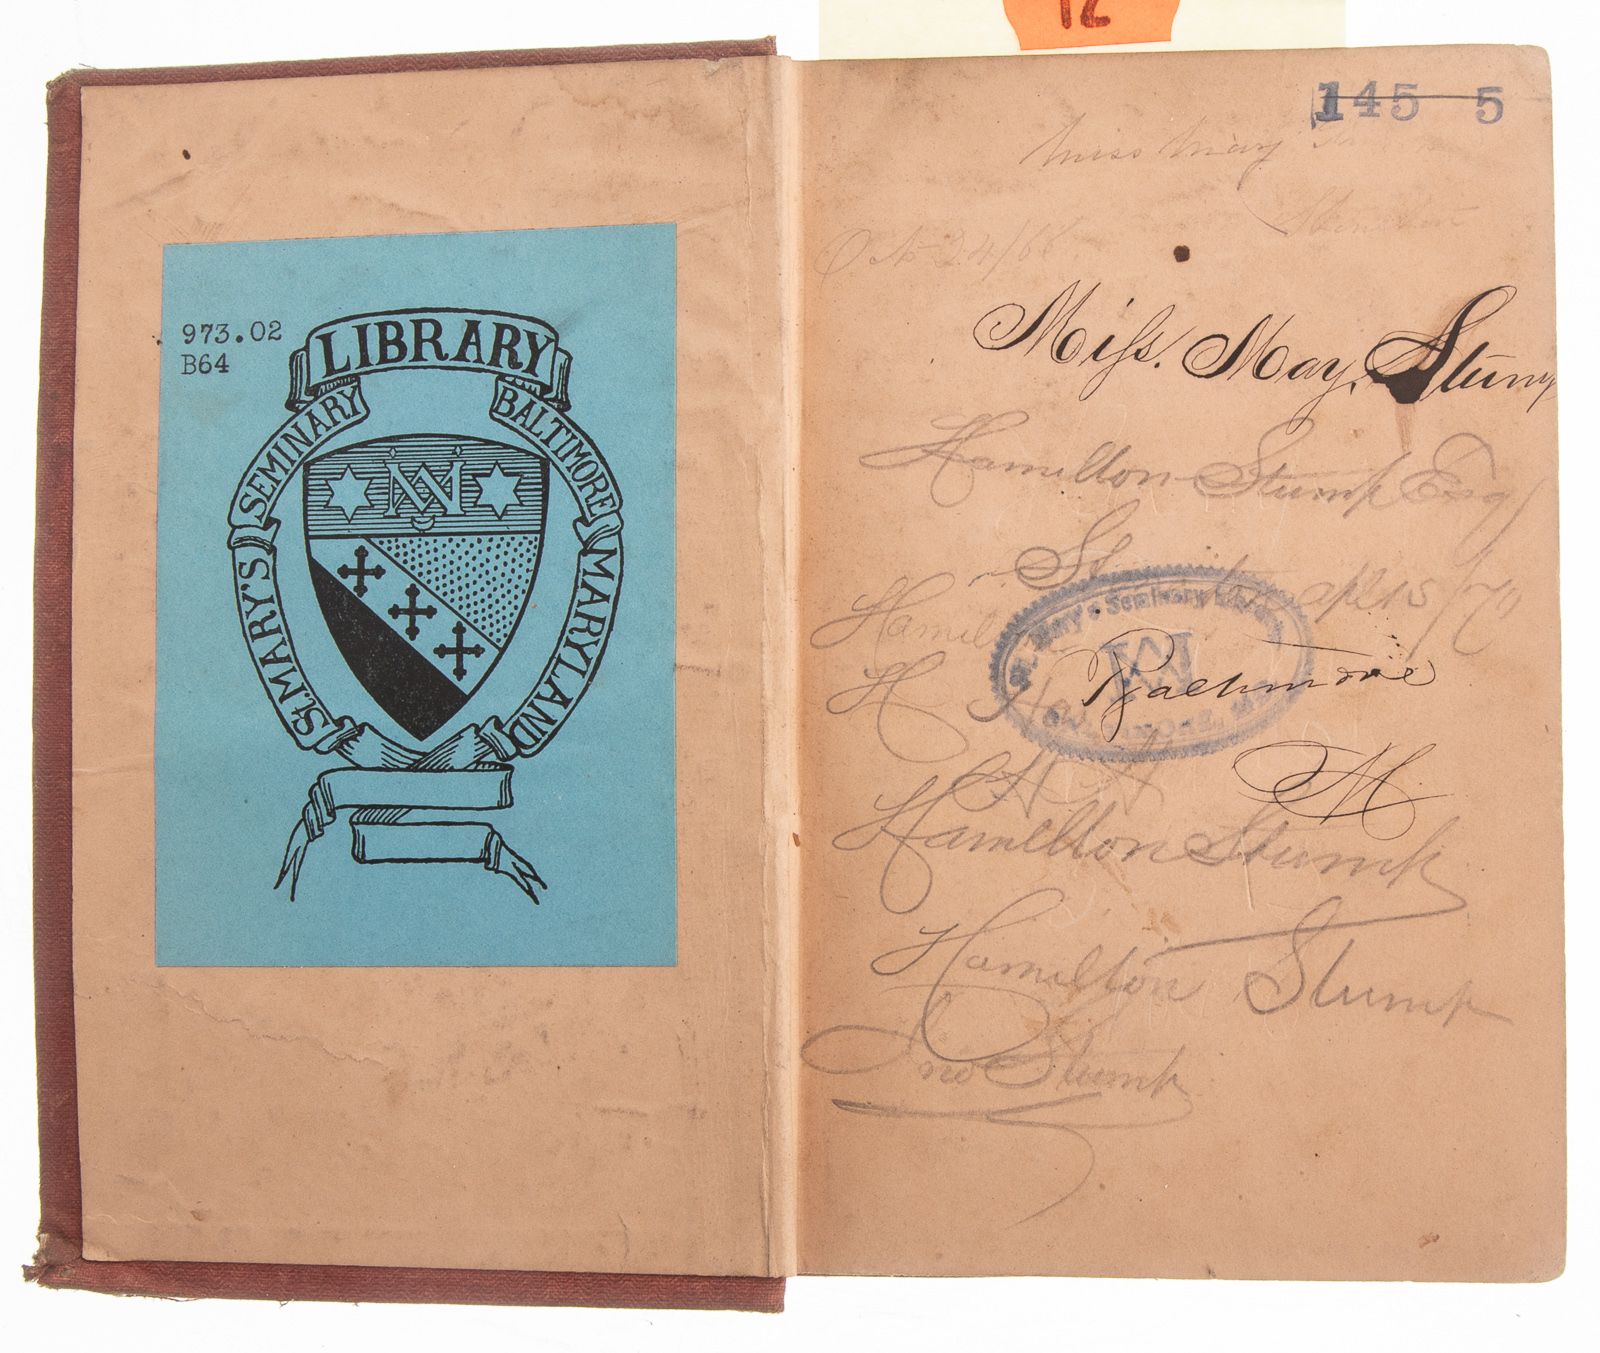 12
973.02
B64
LIBRARY
ST. MARY'S SEMINARY BALTIMORE MARYLAND
145 5
Miss May
Oct 24/68
Miss. May. Stump
Hamilton Stump Esq
St
Hamil apl 15/70
St. Mary's Seminary
Baltimore
H
M.
Hamilton Stump
Hamilton Stump
Jno Stump